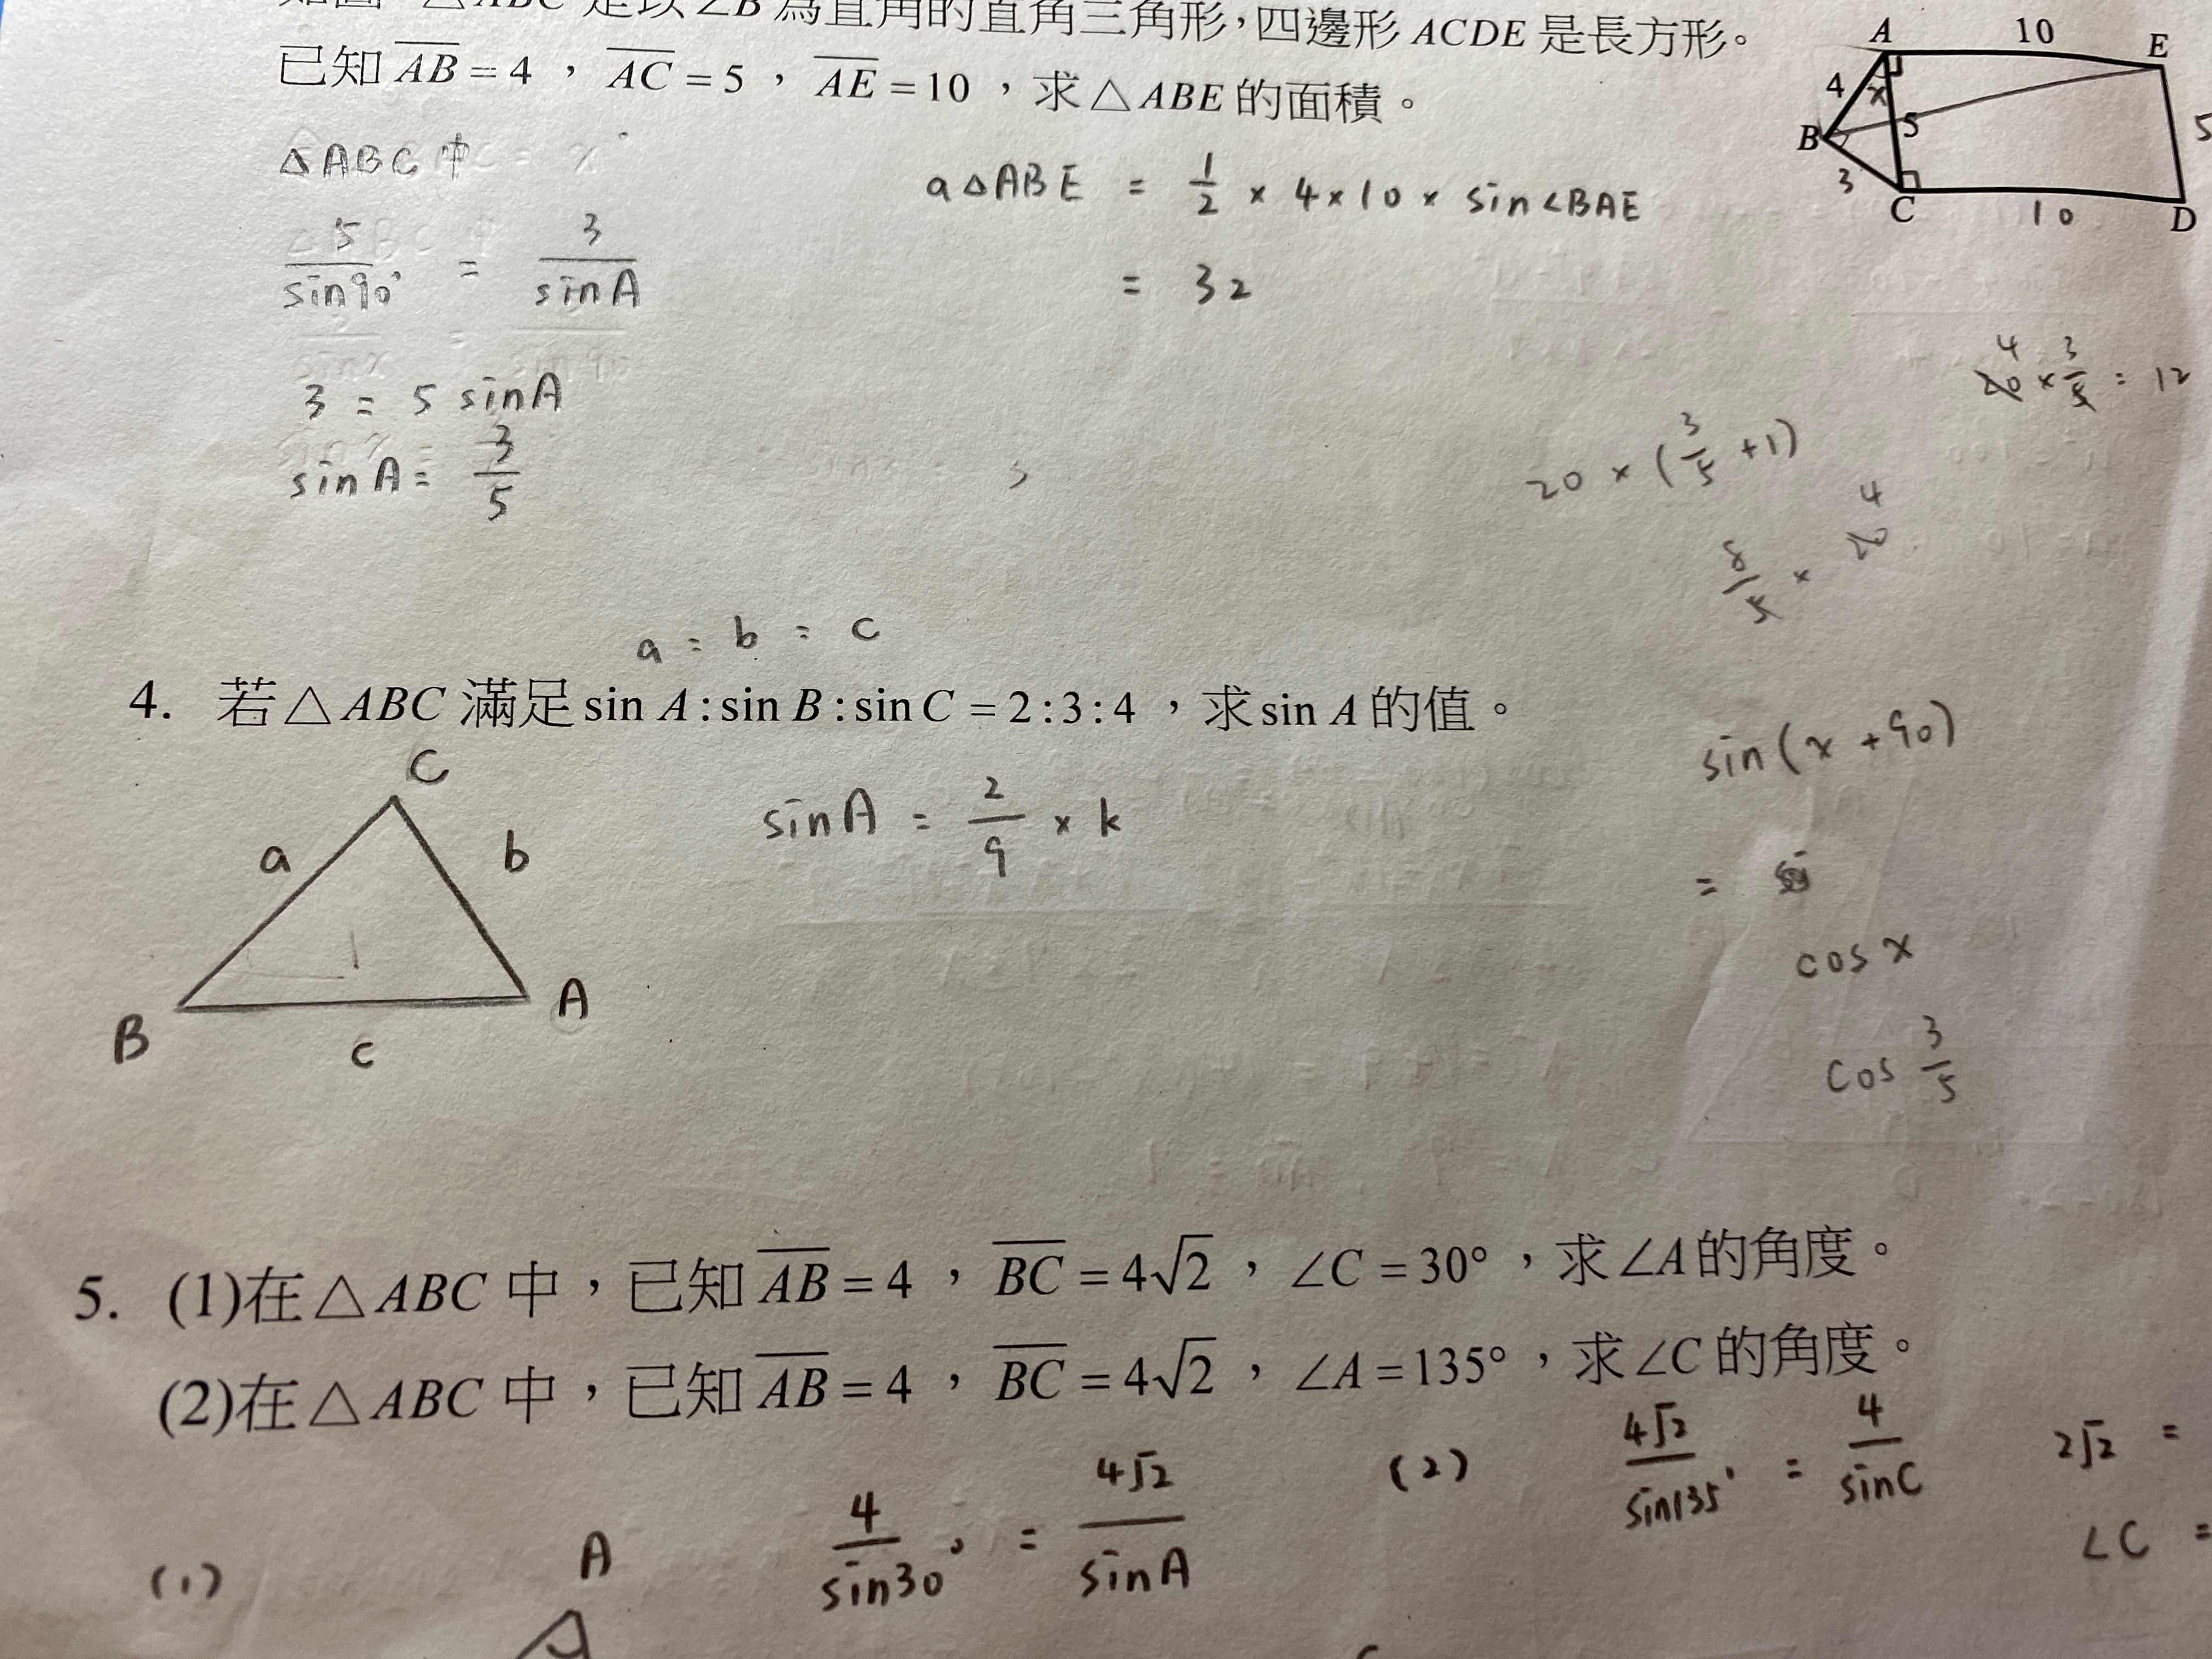 如圖，△ABC 是以∠B 為直角的直角三角形，四邊形 ACDE 是長方形。
已知 AB = 4 ， AC = 5 ， AE = 10 ，求△ABE 的面積。
A 10 E
4 x 5 5
B
3 C 10 D
△ABC中
5/sin90° = 3/sinA
3 = 5 sinA
sinA = 3/5
a△ABE = 1/2 × 4 × 10 × sin∠BAE
= 32
4
20 × 3/5 = 12
20 × (3/5 + 1)
8/5 × 20
4
a : b : c
4. 若△ABC 滿足 sin A : sin B : sin C = 2 : 3 : 4 ，求 sin A 的值。
C
a b
B c A
sinA = 2/9 × k
sin(x + 90)
=
cos x
cos 3/5
5. (1)在△ABC 中，已知 AB = 4 ， BC = 4√2 ， ∠C = 30° ，求∠A 的角度。
(2)在△ABC 中，已知 AB = 4 ， BC = 4√2 ， ∠A = 135° ，求∠C 的角度。
(1) A
4/sin30° = 4√2/sinA
(2) 4√2/sin135° = 4/sinC
2√2 =
∠C =